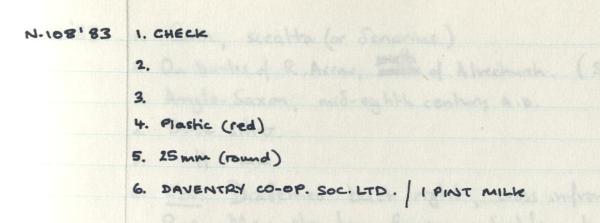 N.108'83 1. CHECK
2.
3.
4. Plastic (red)
5. 25mm (round)
6. DAVENTRY CO-OP. SOC. LTD. / 1 PINT MILK